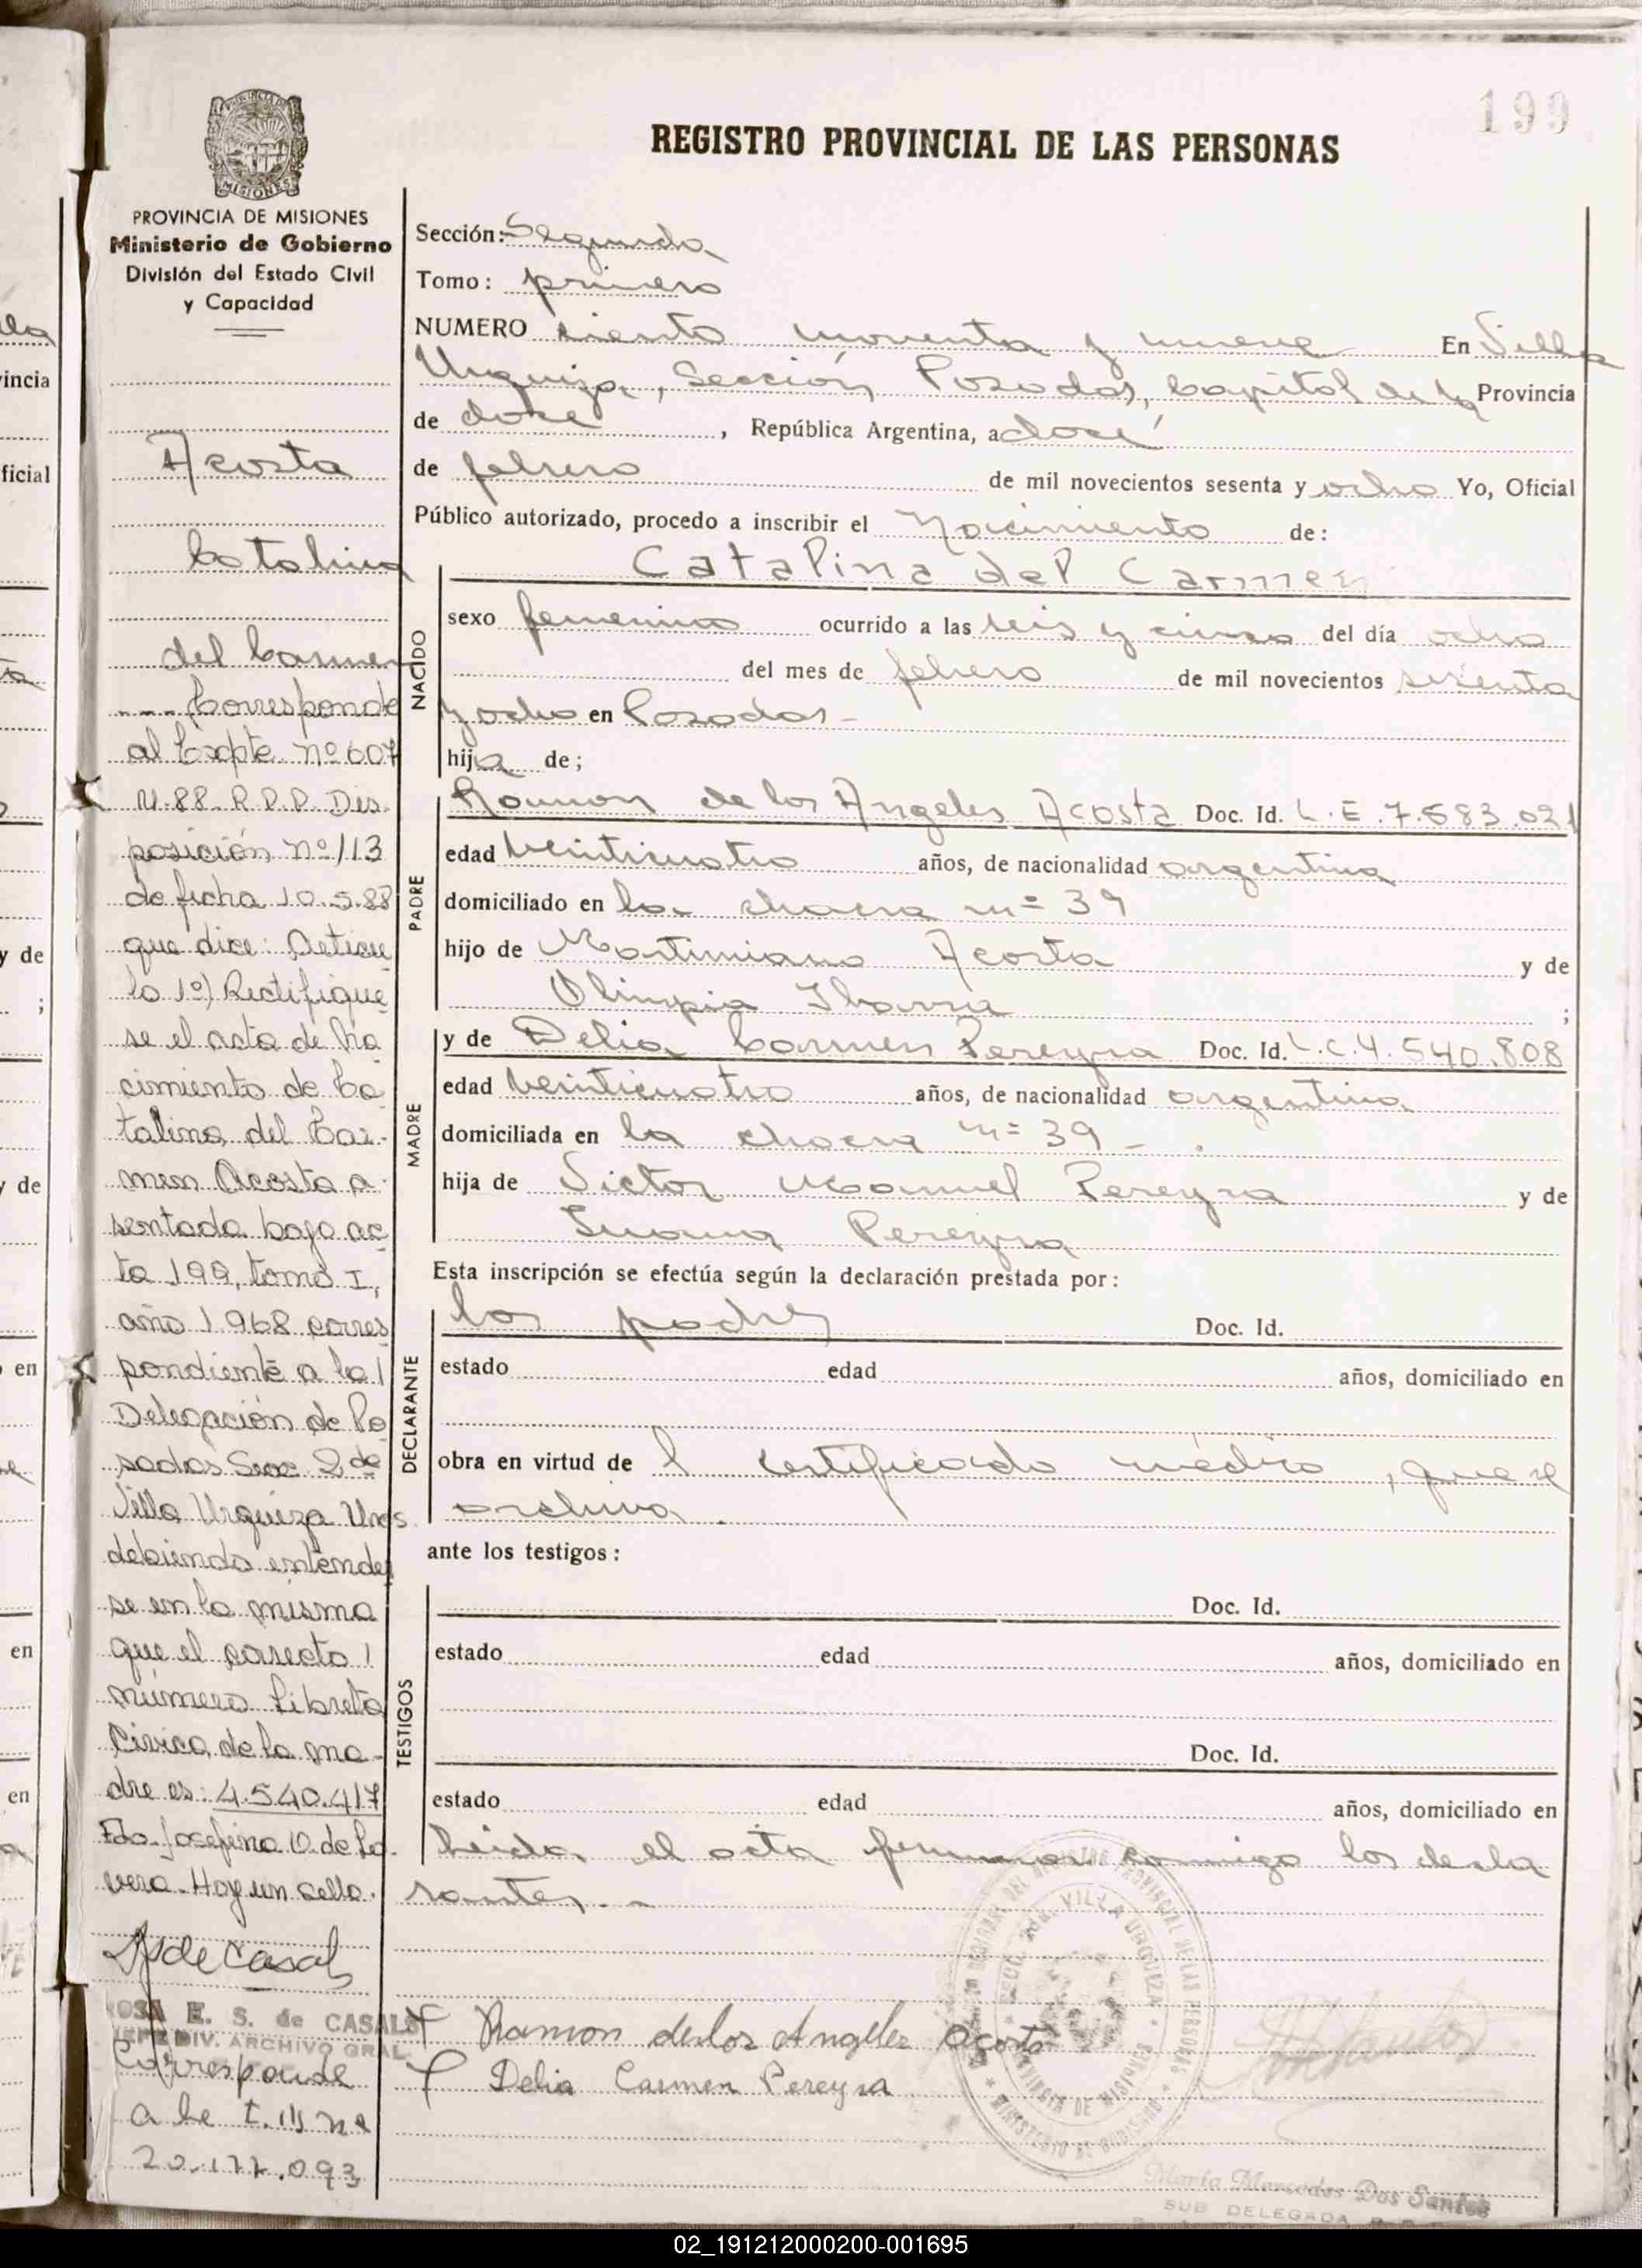 199
REGISTRO PROVINCIAL DE LAS PERSONAS
PROVINCIA DE MISIONES
Ministerio de Gobierno
División del Estado Civil
y Capacidad
Acosta
Catalina
del Carmen
--- Corresponde
al Expte. Nº 607
U.88. R.P.P. Dis-
posición nº 113
de fecha 10.5.88
que dice: Articu
lo 1º) Rectifique
se el acta de Na
cimiento de Ca
talina del Car-
men Acosta a-
sentada bajo ac
ta 199, tomo I,
año 1968 corres
pondiente a la
Delegación de Po
sadas Secc 2da
Villa Urquiza Mnes
debiendo entender
se en la misma
que el correcto
número Libreta
Cívica de la ma-
dre es: 4.540.417
Fdo. Josefina O. de
vera. Hay un sello.
de Casals
ROSA E. S. de CASALS
JEFE DIV. ARCHIVO GRAL
Corresponde
a
20.177.093
Sección: Segunda
Tomo: primero
NUMERO ciento noventa y nueve En Villa
Urquiza, Sección Posadas, Capital de la Provincia
de doce, República Argentina, a doce
de febrero de mil novecientos sesenta y ocho Yo, Oficial
Público autorizado, procedo a inscribir el Nacimiento de:
NACIDO
Catalina del Carmen
sexo femenino ocurrido a las seis y cinco del día ocho
del mes de febrero de mil novecientos sesenta
y ocho en Posadas -
hija de;
PADRE
Ramon de los Angeles Acosta Doc. Id. L.E.7.583.021
edad veinticuatro años, de nacionalidad argentina
domiciliado en la chacra nº 39
hijo de Martimiano Acosta y de
Olimpia Ibarra ;
MADRE
y de Delia Carmen Pereyra Doc. Id. L.C.4.540.808
edad veinticuatro años, de nacionalidad argentina
domiciliada en la chacra nº 39 -.
hija de Victor Manuel Pereyra y de
Juana Pereyra
Esta inscripción se efectúa según la declaración prestada por:
DECLARANTE
los padres Doc. Id.
estado edad años, domiciliado en
obra en virtud de l certificado médico, que se
archiva.
ante los testigos:
TESTIGOS
Doc. Id.
estado edad años, domiciliado en
Doc. Id.
estado edad años, domiciliado en
Leida el acta firman conmigo los decla
rantes.--
Ramon de los Angeles Acosta
Delia Carmen Pereyra
VILLA URQUIZA
Maria Mercedes Dos Santos
SUB DELEGADA
ficial
vincia
y de
en
02_191212000200-001695